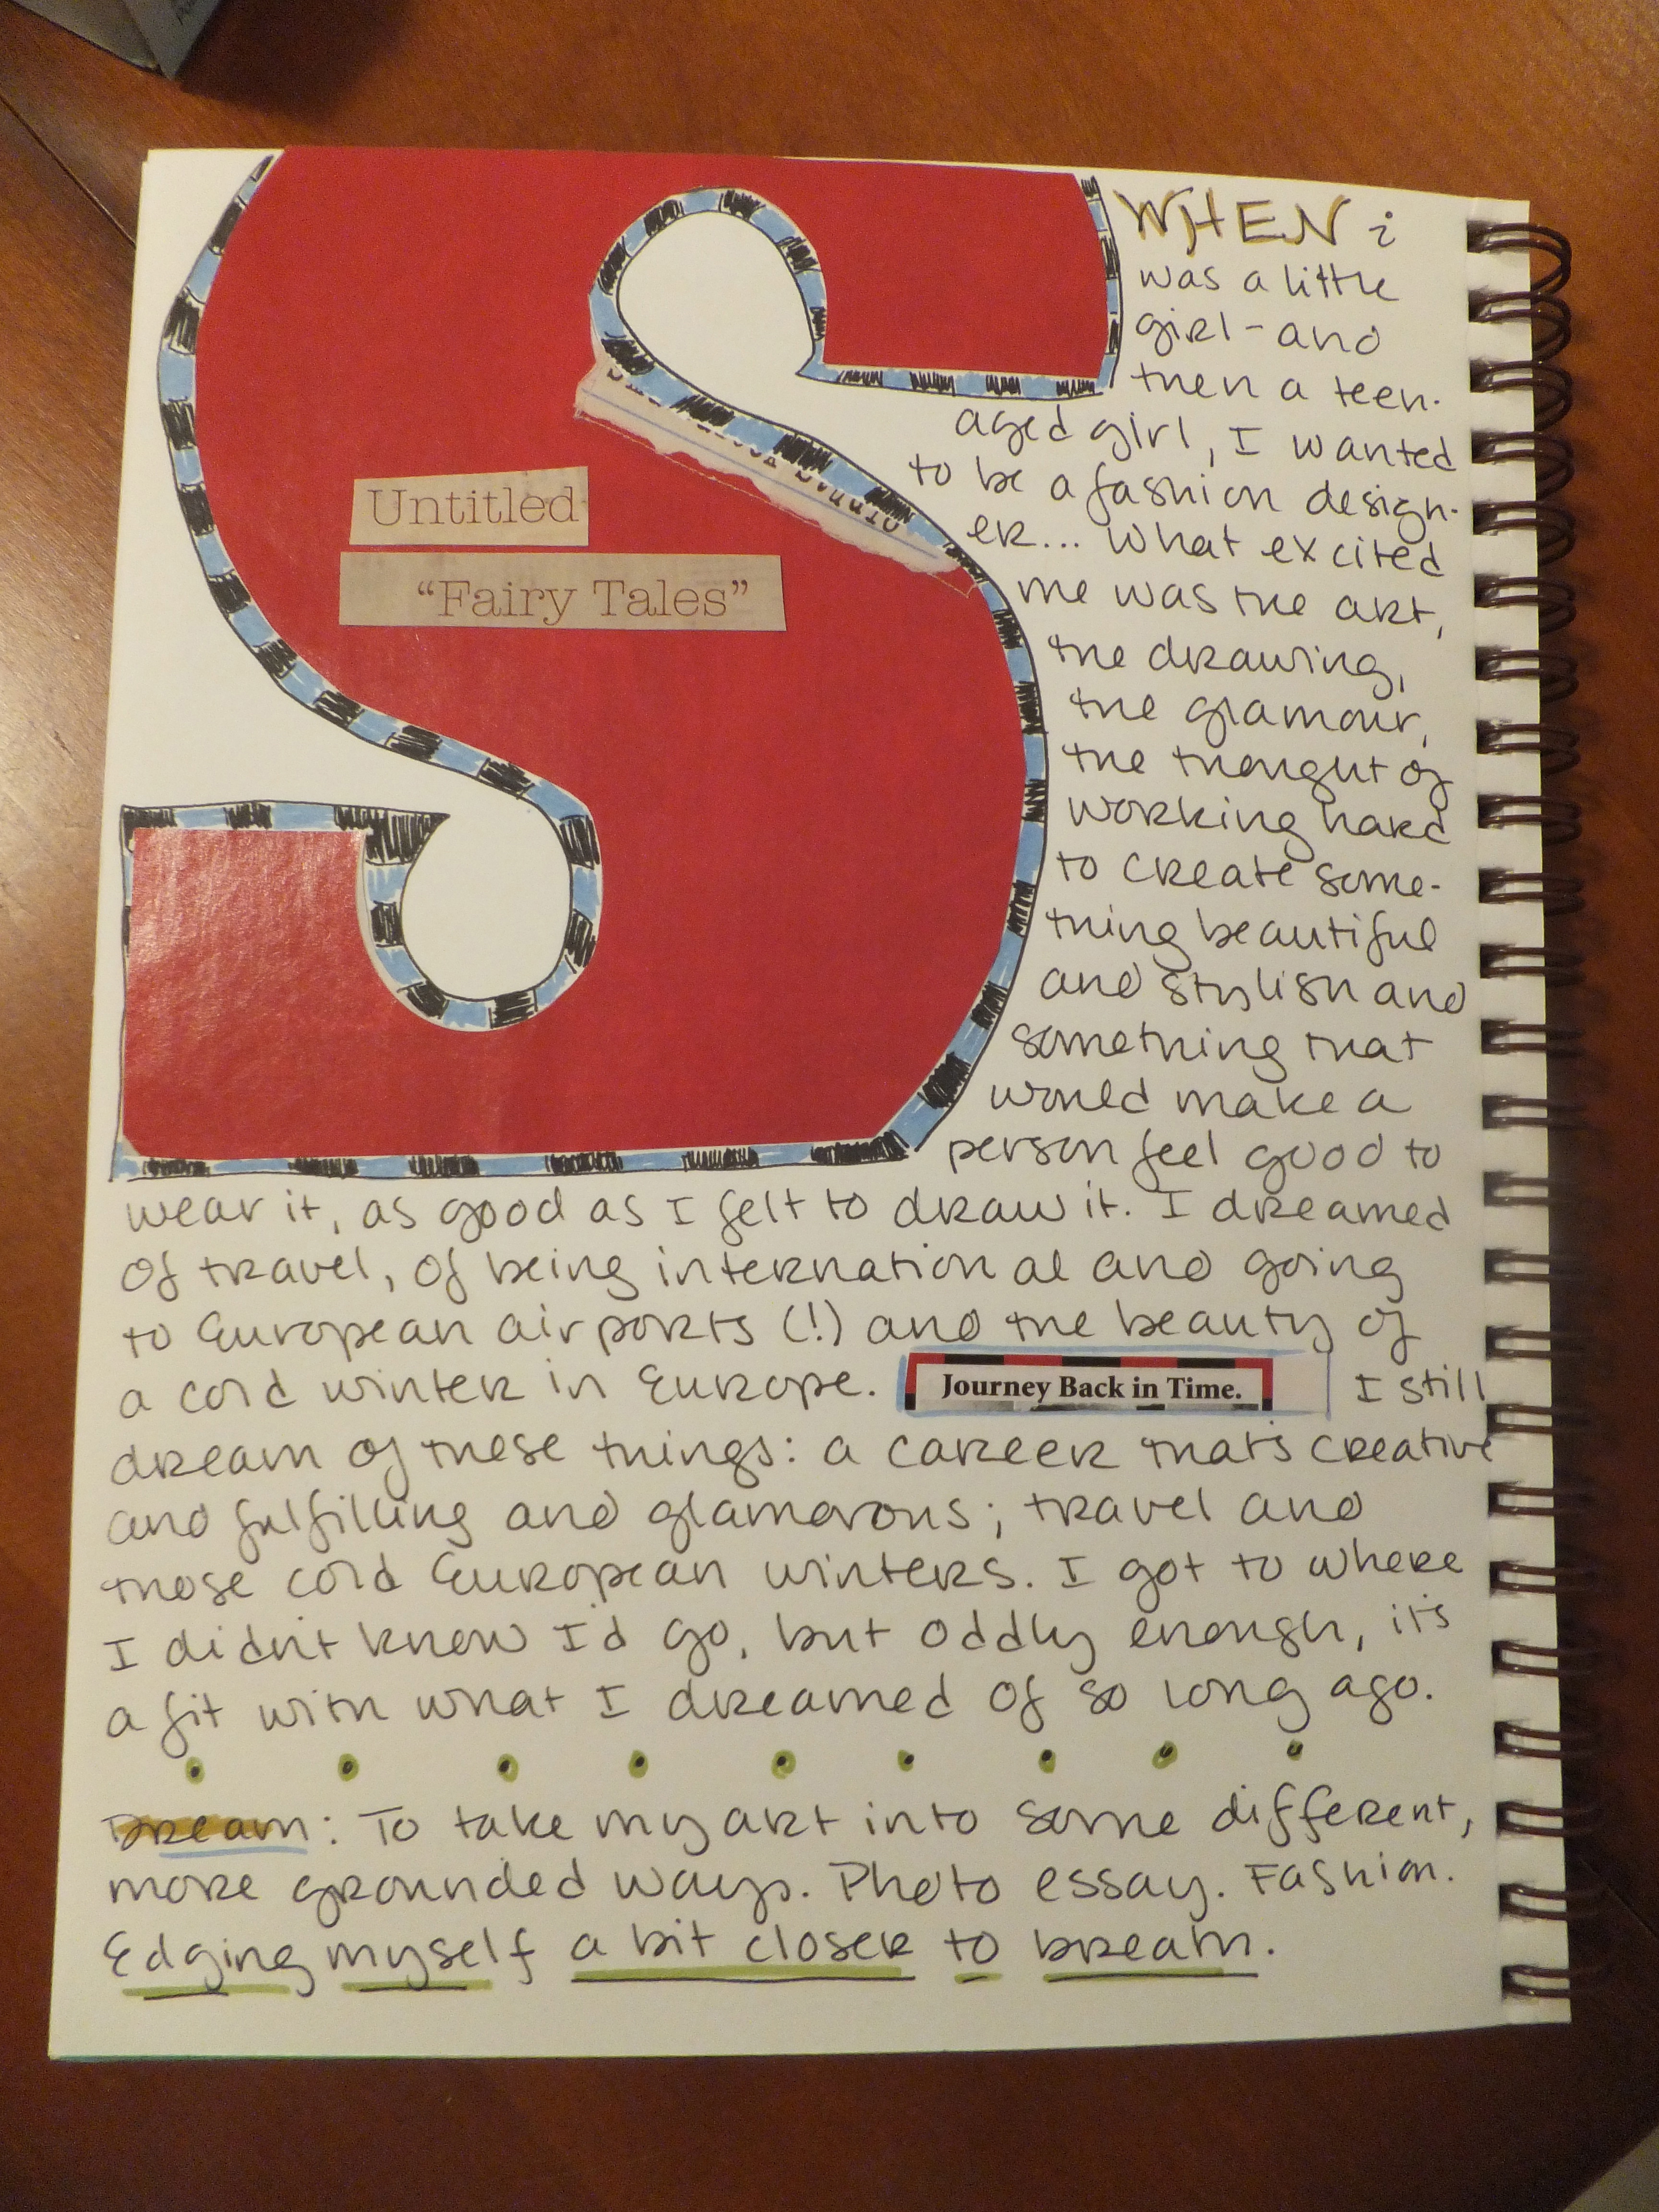 Untitled
"Fairy Tales"
WHEN i
was a little
girl - and
then a teen-
aged girl, I wanted
to be a fashion design-
er... What excited
me was the art,
the drawing,
the glamour,
the thought of
working hard
to create some-
thing beautiful
and stylish and
something that
would make a
person feel good to
wear it, as good as I felt to draw it. I dreamed
of travel, of being international and going
to European airports (!) and the beauty of
a cold winter in Europe. Journey Back in Time. I still
dream of these things: a career that's creative
and fulfilling and glamorous; travel and
those cold European winters. I got to where
I didn't know I'd go, but oddly enough, it's
a fit with what I dreamed of so long ago.
Dream: To take my art into some different,
more grounded ways. Photo essay. Fashion.
Edging myself a bit closer to dream.